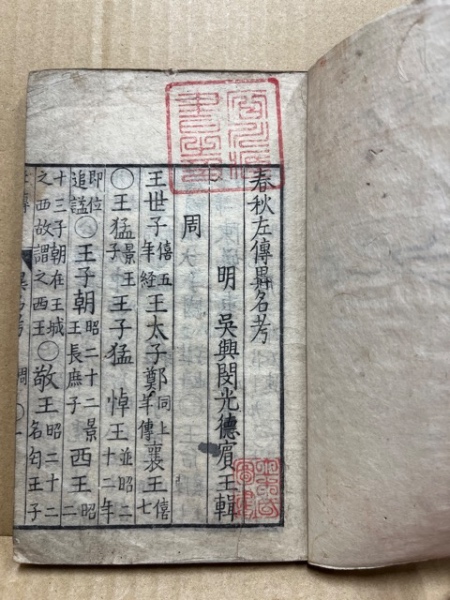 春秋左傳異名考
明 吳興閔光德賓王輯
周
王世子僖五年經王太子鄭同上年傳襄王僖七
○王猛景王子王子猛悼王並昭二十二年
即位追諡○王子朝昭二十二景王長庶子西王昭二
十三子朝在王城之西故謂之西王○敬王昭二十二名匄王子